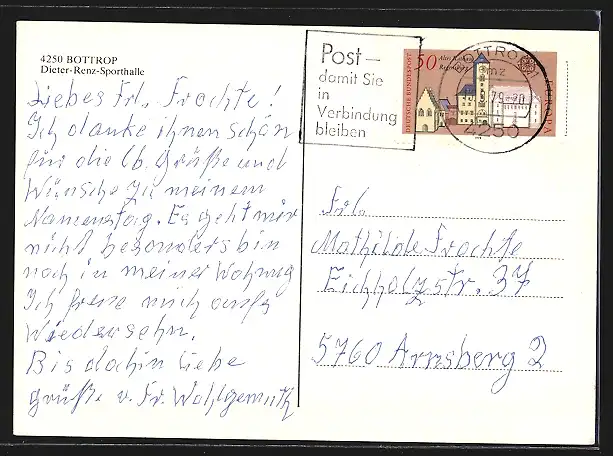 4250 BOTTROP
Dieter-Renz-Sporthalle
Liebes Frl. Frochte!
Ich danke ihnen schön
für die lb. Grüße und
Wünsche zu meinem
Namenstag. Es geht mir
nicht besonders bin
noch in meiner Wohnung
Ich freue mich aufs
Wiedersehn.
Bis dachin liebe
grüße v. Fr. Wohlgemuth
Post –
damit Sie
in
Verbindung
bleiben
DEUTSCHE BUNDESPOST
50
Altes Rathaus
Regensburg
EUROPA
BOTTROP 1
mz
4250
Frl.
Mathilde Frochte
Eichholzstr. 37
5760 Arnsberg 2